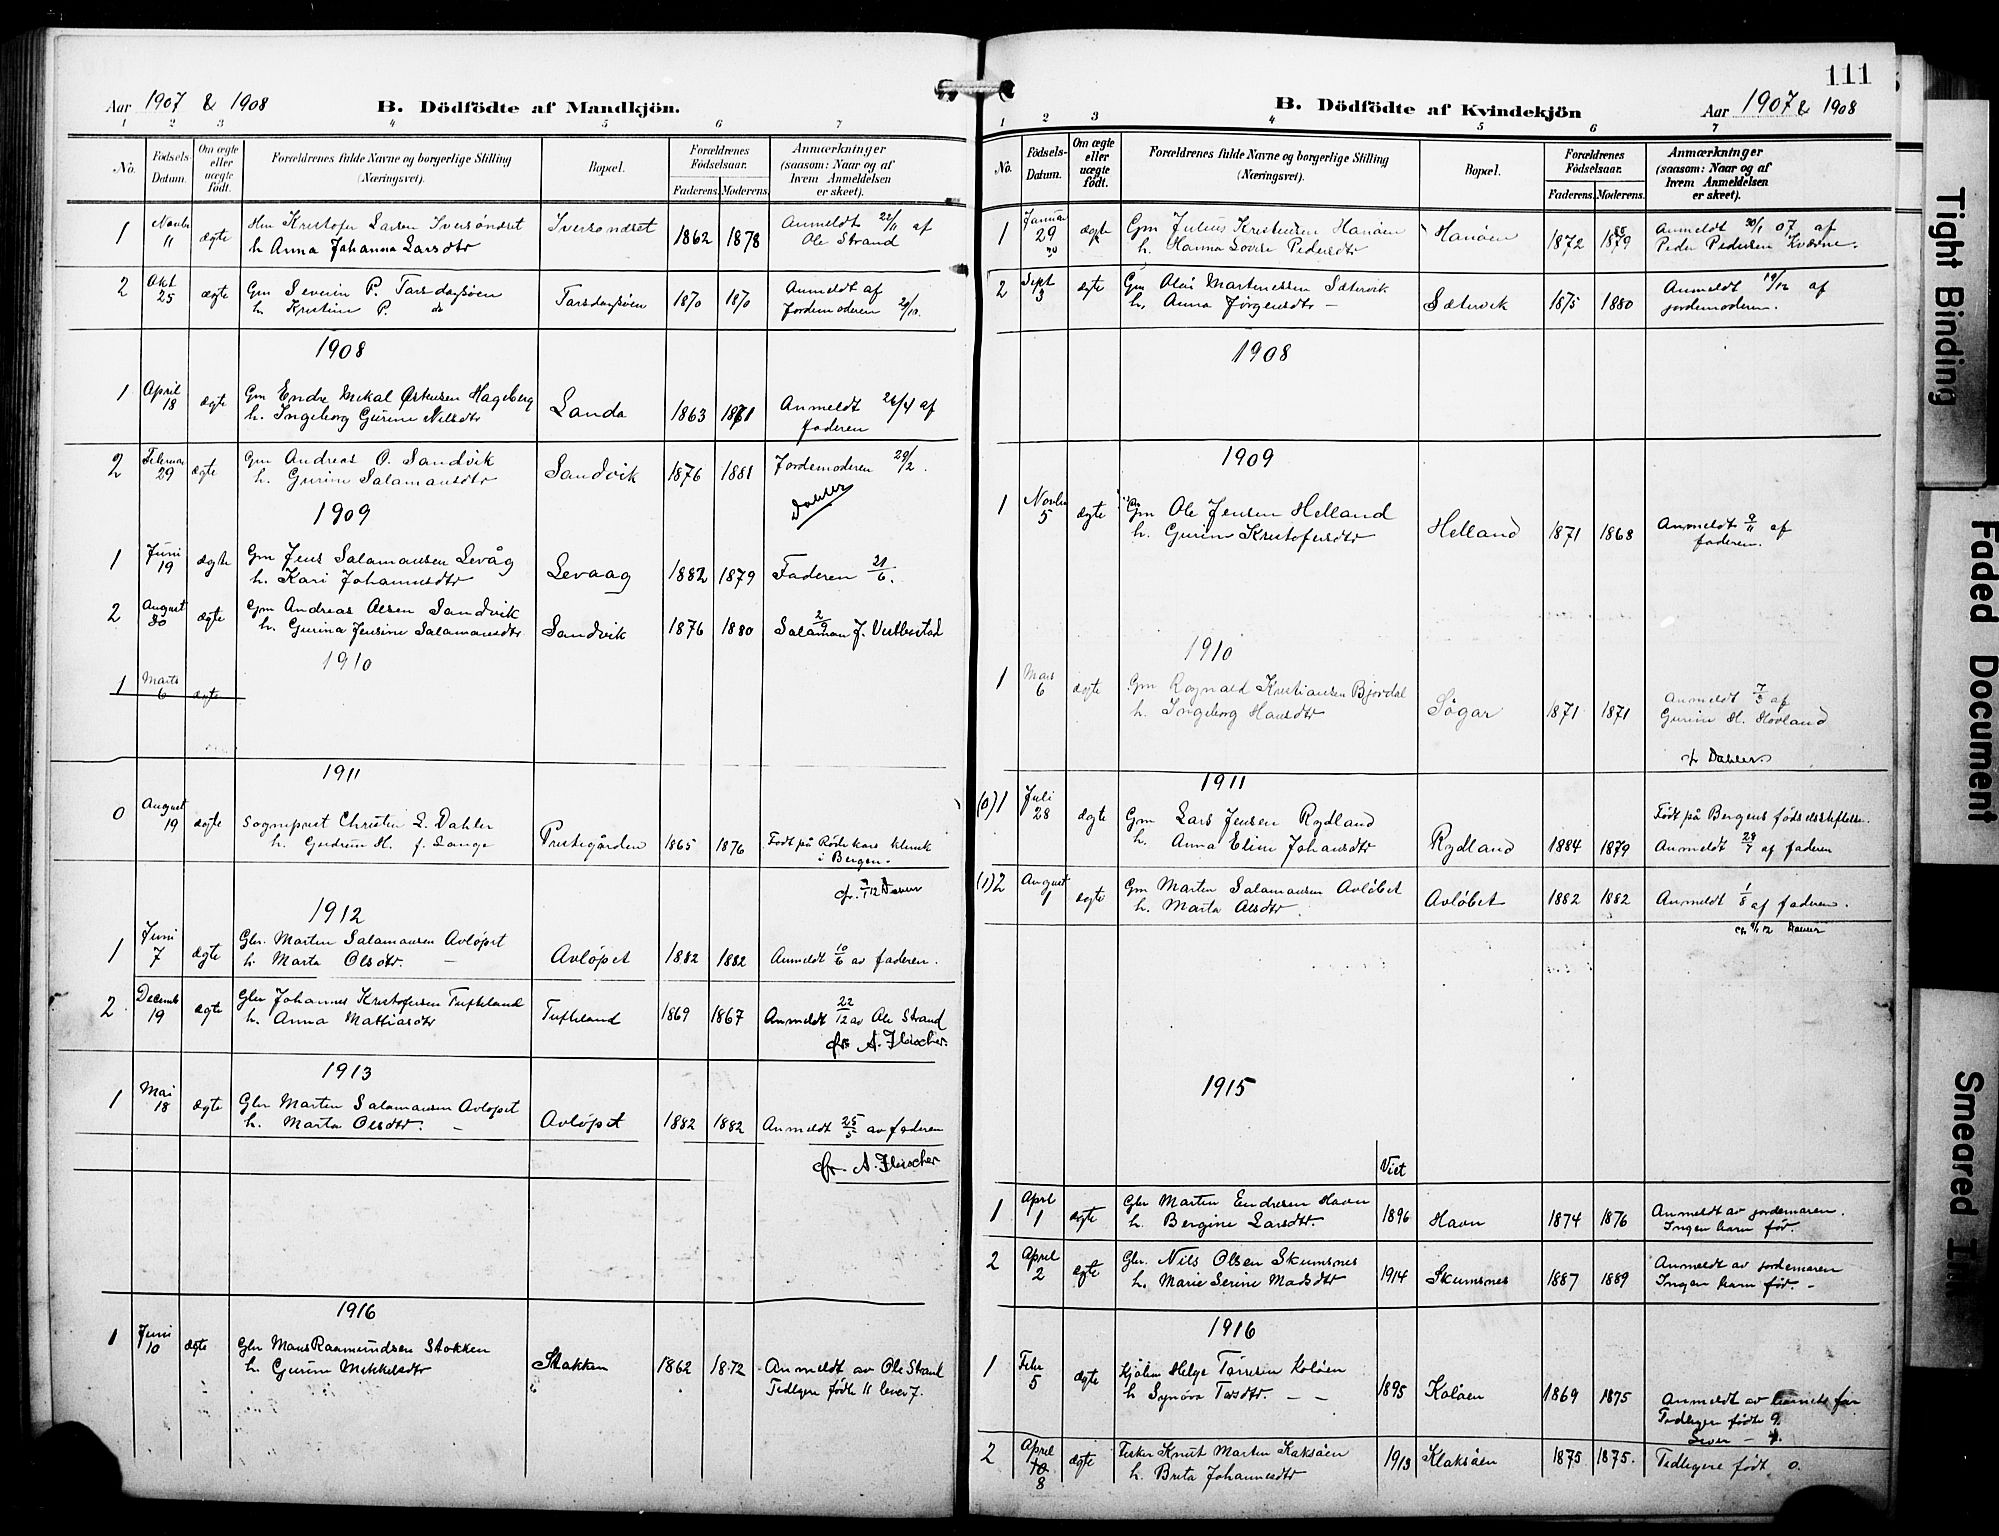 Aar 1907 & 1908
B. Dödfödte af Mandkjön.
1 2 3 4 5 6 7
No.
Födsels-
Datum.
Om ægte
eller
uægte
født.
Forældrenes fulde Navne og borgerlige Stilling
(Næringsvei).
Bopæl.
Forældrenes
Födselsaar.
Faderens. Moderens.
Anmærkninger
(saasom: Naar og af
hvem Anmeldelsen
er skeet).
1 Novbr 11 ægte Kristofer Larsen Iversöndret Iversondret 1862 1878 Anmeldt 22/11 af
h. Anna Johanna Larsdtr Ole Strand
2 Okt 25 ægte Gm Severin P. Tarsdagsöen Tarsdagsöen 1870 1870 Anmeldt af
h. Kristine P. do Jordemoderen
1908
1 April 18 ægte Gm Endre Mikal Hageberg Landa 1863 1871 Anmeldt af
h. Ingeborg Gurine Nilsdtr faderen
2 Februar 29 ægte Gm Andreas O. Sandvik Sandvik 1876 1881 Jordemoderen 29/2.
h. Gurine Salamonsdtr
Dahler
1909
1 Juni 19 ægte Gm Jens Salamonsen Levåg Levaag 1882 1879 Faderen 21/6.
h. Kari Johannesdtr
2 August 30 ægte Gm Andreas Olsen Sandvik Sandvik 1876 1880 2/9
h. Gurina Jensine Salamonsdtr Salamon J. Vestbostad
1910
1 Marts 6 ægte
1911
0 August 19 ægte Sogneprest Christen L. Dahler Prestegården 1865 1876 Født på Røde kors klinik
h. Gudrun H. f. Lange i Bergen.
1912
1 Juni 7 ægte Gbr. Martin Salamonsen Avlöpet Avlöpet 1882 1882 Anmeldt 10/6 av faderen.
h. Marta Olsdtr. –
2 Decemb 19 ægte Gbr Johannes Kristofersen Tufteland Tufteland 1869 1867 Anmeldt 22/12 av Ole Strand
h. Anna Mattiasdtr
A. Fleischer.
1913
1 Mai 18 ægte Gbr Martin Salamonsen Avlöpet Avlöpet 1882 1882 Anmeldt 25/5 av faderen
h. Marta Olsdtr. –
A. Fleischer
1916
1 Juni 10 ægte Gbr Mons Rasmundsen Stokken Stokken 1862 1872 Anmeldt av Ole Strand
h. Gurine Mikkelsdtr Tidligere födte 11 lever 7.
111
B. Dödfödte af Kvindekjön
Aar 1907 & 1908
1 2 3 4 5 6 7
No.
Födsels-
Datum.
Om ægte
eller
uægte
födt.
Forældrenes fulde Navne og borgerlige Stilling
(Næringsvei).
Bopæl.
Forældrenes
Födselsaar.
Faderens. Moderens.
Anmærkninger
(saasom: Naar og af
hvem Anmeldelsen
er skeet).
1 Januar 29 ægte Gm Julius Kristensen Hanöen Hanöen 1872 1879 Anmeldt 30/1 07 af
h. Hanna Lovise Pedersdtr Peder Pedersen Kværne.
2 Sept 3 ægte Gm Martinessen Sætervik Sætervik 1875 1880 Anmeldt af
h. Anna Jørgensdtr – jordemoderen.
1908
1909
1 Novbr 5 ægte Gm Ole Jensen Helland Helland 1871 1868 Anmeldt 9/11 af
h. Gurine Kristofersdtr faderen.
1910
1 Mars 6 ægte Gm Rognald Kristiansen Bjordal Sögar 1871 1871 Anmeldt 7/3 af
h. Ingeborg Hansdtr Gurine H. Hovland
Dahler.
1911
(0) 1 Juli 28 ægte Gm Lars Jensen Rydland Rydland 1884 1879 Født på Bergens fødselsstiftelse.
h. Anna Eline Johansdtr Anmeldt 29/7 af faderen
(1) 2 August 1 ægte Gm Martin Salamonsen Avlöbet Avlöbet 1882 1882 Anmeldt 1/8 af faderen.
h. Marta Olsdtr.
1915
Viet
1 April 1 ægte Gbr Martin Endresen Havn 1896 Havn 1874 1876 Anmeldt av jordemoren.
h. Bergine Larsdtr Ingen barn før.
2 April 2 ægte Gbr. Nils Olsen Skumsnes 1914 Skumsnes 1887 1889 Anmeldt av jordemoren
h. Marie Serine Madsdtr Ingen barn før. –
1916
1 Febr 5 ægte Helge Tørresen Kolöen 1895 Kolöen 1869 1875 Anmeldt av barnets far
h Synöva Tarsdtr. – – Tidligere födte 9.
Lever – 4.
2 April 10 8 ægte Fisker Knut Martin Kaksöen 1913 Klaksöen 1875 1875. Tidligere født 0.
h. Brita Johannesdtr
Tight Binding
Faded Document
Smeared Ink